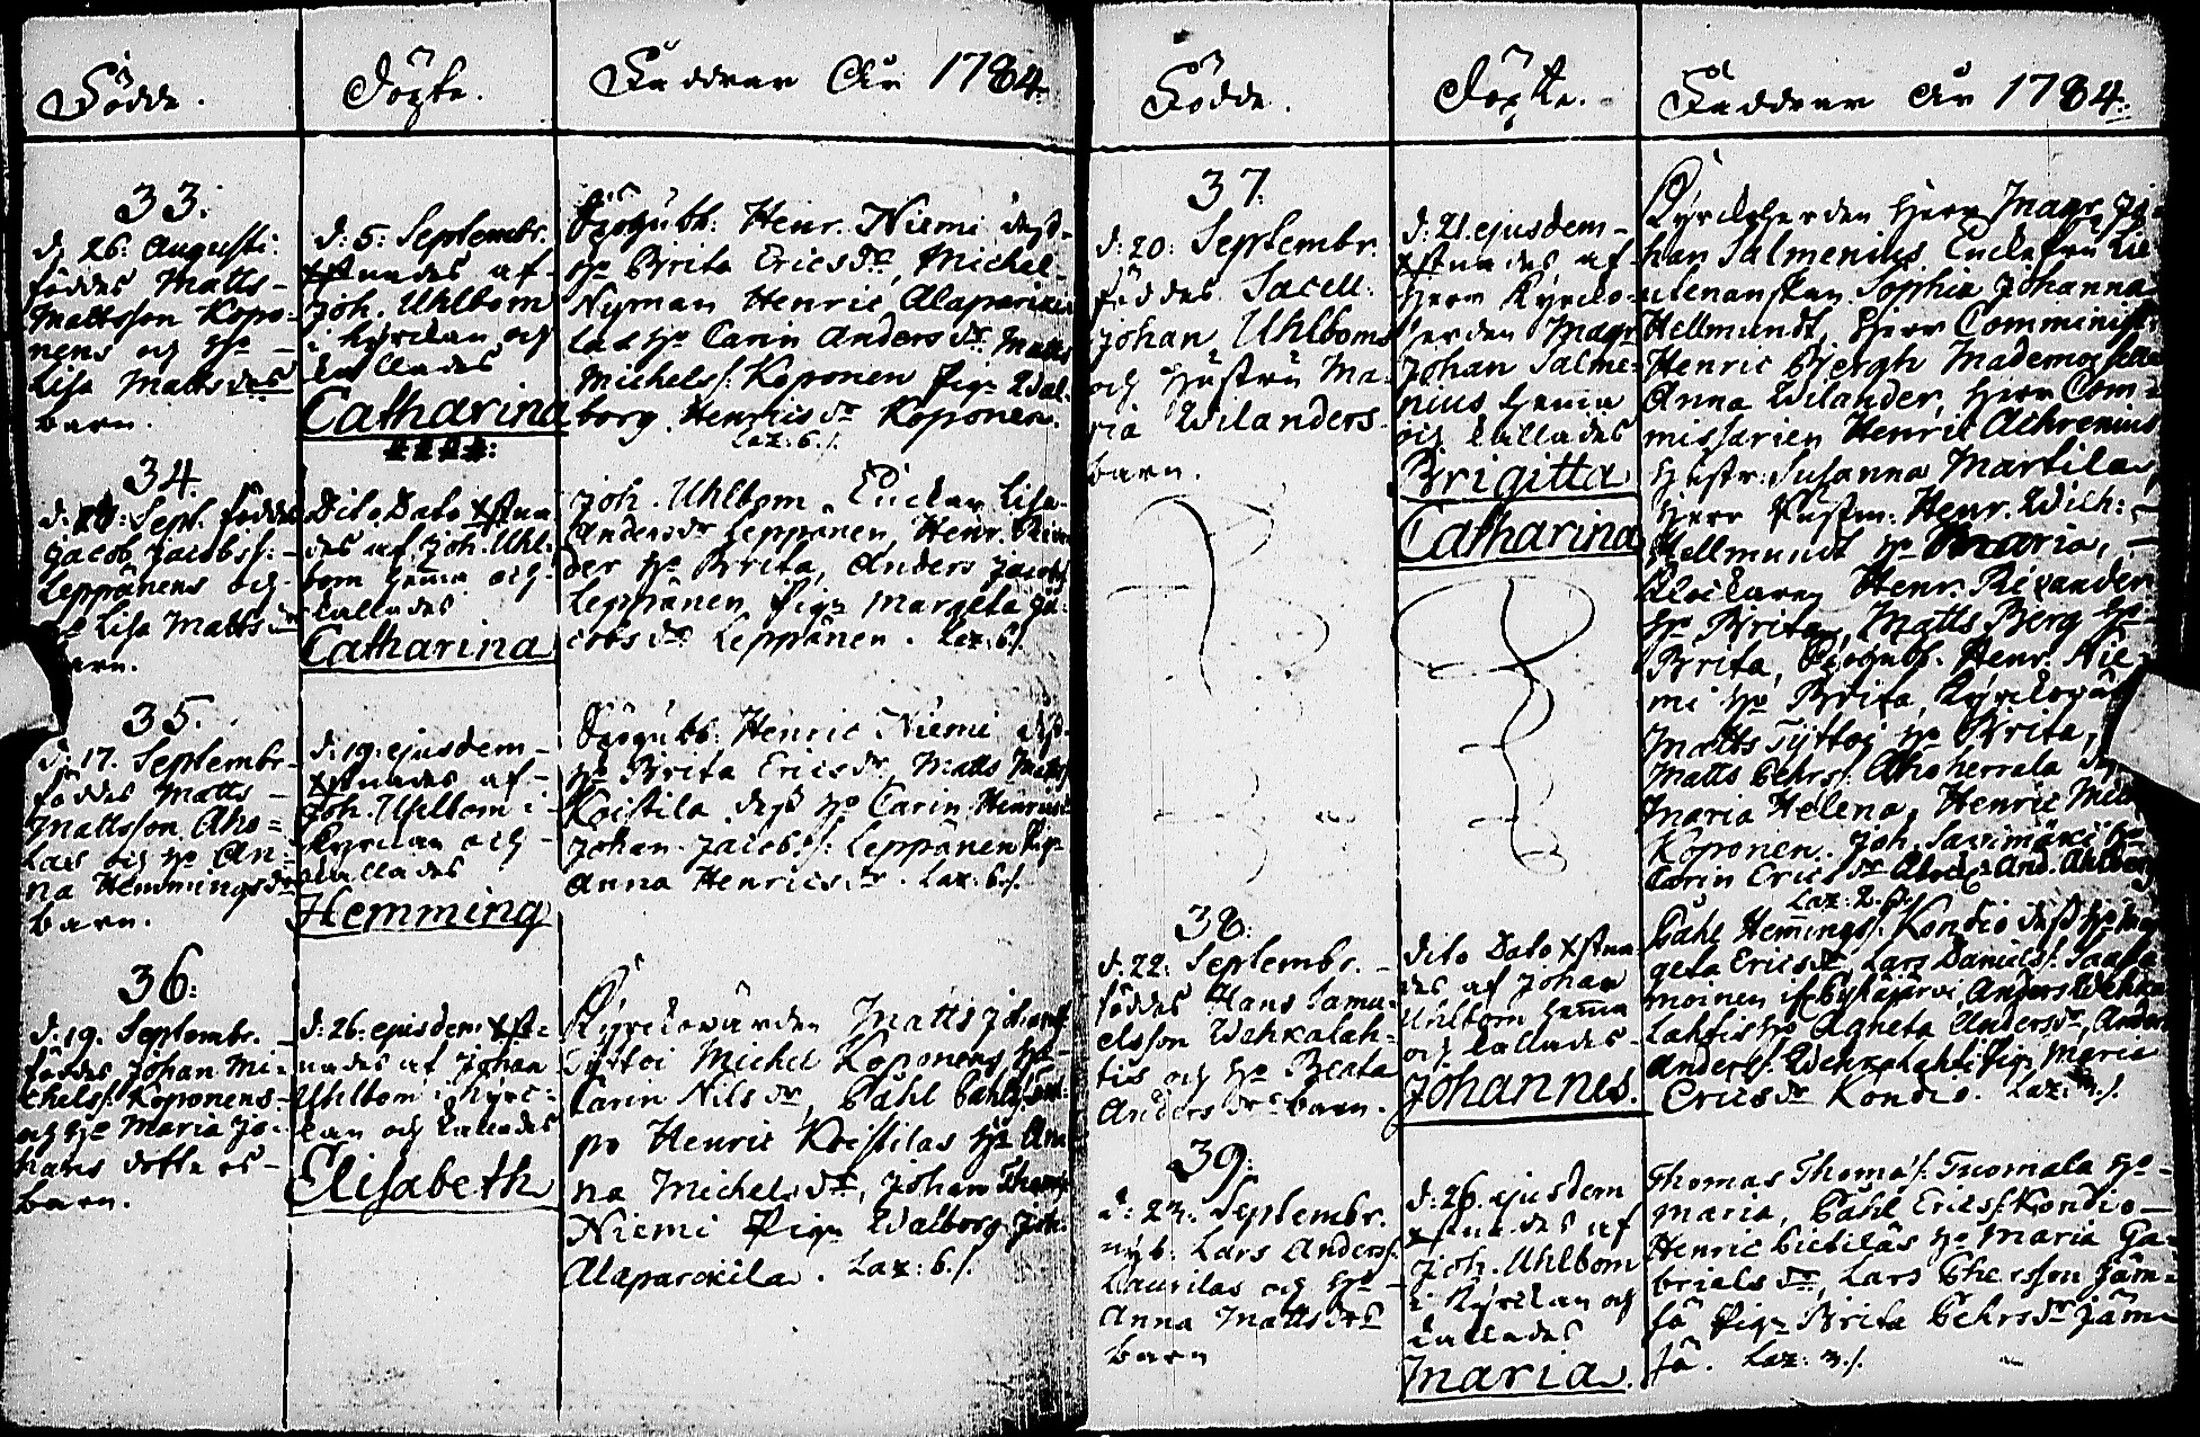 Födde.
Döpte.
Faddrar År 1784.
33.
d. 26. Augusti
föddes Matts
Mattsson Kopo=
nens och h:o
Lisa Mattsdrs
barn.
d: 5: Septembr.
xstnades af
Joh. Uhlbom
i Kyrckan och
kallades
Catharina
Henr. Niemi dess
h:o Brita Ericsdr, Michel
Nyman Henric Alaparckila
h:o Carin Andersdr Matts
Michelss: Koponen Pig: Wal=
borg Henricsdr Koponen.
Lax: 6./.
34.
Sept. föddes
Jacob Jacobss:
Leppänens och
h:o Lisa Mattsdrs
barn.
Dito Dato xstna
des af Joh. Uhl=
bom hema och
kallades
Catharina
Joh. Uhlbom, Enckan Lisa
Andersdr Leppänen, Henr.
h:o Brita, Anders Jacobss
Leppänen Pig: Margeta Ja=
cobsdr Leppänen. Lax: 6./.
35.
d: 17. Septembr.
föddes Matts
Mattsson Aho=
las och h:o An=
na Hemmingsdrs
barn.
d: 19. ejusdem
xstnades af
Joh. Uhlbom i
Kyrckan och
kallades
Hemming
Henric Niemi dess
h:o Brita Ericsdr, Matts Mattss
Koistila dess h:o Carin Henricsdr
Johan Jacobss: Leppänen Pig:
Anna Henricsdr. Lax: 6./.
36.
d: 19. Septembr.
föddes Johan Mi=
chelss: Koponens
och h:o Maria Jo=
hans dotters
barn.
d: 26. ejusdem xst=
nades af Johan
Uhlbom i Kyrc=
kan och kallades
Elisabeth
Kyrckowärden Matts Johanss
Tyttoi Michel Koponens h:o
Carin Nilsdr, Påhl Påhlss
Henric Koistilas h:o An
na Michelsdr, Johan Thomss
Niemi Pig: Walborg Joh:
Alaparckila. Lax: 6./.
Födde.
Döpte.
Faddrar År 1784.
37.
d: 20: Septembr.
föddes Sacell:
Johan Uhlboms
och hustru Ma=
ria Wilanders
barn.
d: 21. ejusdem
xstnades af
Herr Kyrcko=
herden Magr
Johan Salme=
nius hema
och kallades
Brigitta
Catharina
Kyrckoherden Herr Magr Jo=
han Salmenius Enckefru Lie
utenanskan Sophia Johanna
Hellmundt, Herr Comminist:
Henric Bjergh Mademoiselle
Anna Wilander, Herr Com=
missarien Henric Achrenius
hustr: Susanna Martila,
Herr Henr. Wilh:
Hellmundt h:o Maria,
Klockaren Henr. Rixander
h:o Brita, Matts Berg h:o
Brita, Henr. Nie=
mi h:o Brita, Kyrckowär
Matts Tyttoi h:o Brita,
Matts Pehrs: Ahoherrala
Maria Helena, Henric
Koponen. Joh. Savimäki h:o
Carin Ericsdr And. Ahlberg
Lax: 2. 6./.
38.
d: 22: Septembr.
föddes Hans Samu=
elsson Wehkalah=
tis och h:o Beata
Andersdrs barn.
Dito Dato xstna
des af Johan
Uhlbom hema
och kallades
Johannes.
Påhl Hemingss: Kondio dess h:o Mar
geta Ericsdr, Lars Danielss: Saasta
moinen if: Pyhäjärvi, Anders Wehka
lahtis h:o Agneta Andersdr, Anders
Anderss: Wehkalahti Pig: Maria
Ericsdr Kondio. Lax: 3./.
39.
d: 23: Septembr.
nyb. Lars Anderss:
Laurilas och h:o
Anna Mattsdrs
barn
d: 26. ejusdem
xstnades af
Joh. Uhlbom
i Kyrckan och
kallades
Maria.
Thomas Thomass: Tuomala h:o
Maria, Påhl Ericss: Kondio
Henric Pietiläs h:o Maria Ga=
brielsdr, Lars Pherrson Jäm=
sä Pig: Brita Pehrsdr Jäm=
sä. Lax: 3./.